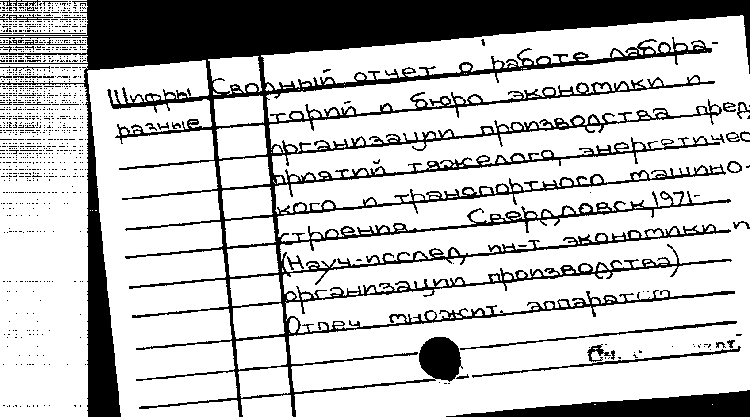 Шифры Сводный отчет о работе лабора-
разные торий и бюро экономики и
организации производства пред-
приятий тяжелого, энергетичес-
кого и транспортного машино-
строения. Свердловск, 1971-
(Науч.-исслед. ин-т экономики и
организации производства)
Отпеч. множит. аппаратом
См.